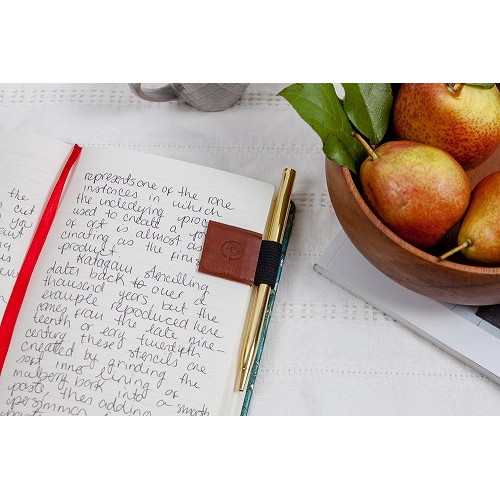 the
cut
you
represents one of the rare
instances in which
the includying proc
used to create a
of art is almost as
cinating as the finis
product.
Katagami stencilling
dates back to over a
thousand years, but the
example reproduced here
comes from the late nine-
teenth or eary twentyeth
century these stencils are
created by grinding the
soft inner lining of
mulberry bark into a smooth
paste, then adding
persimmon